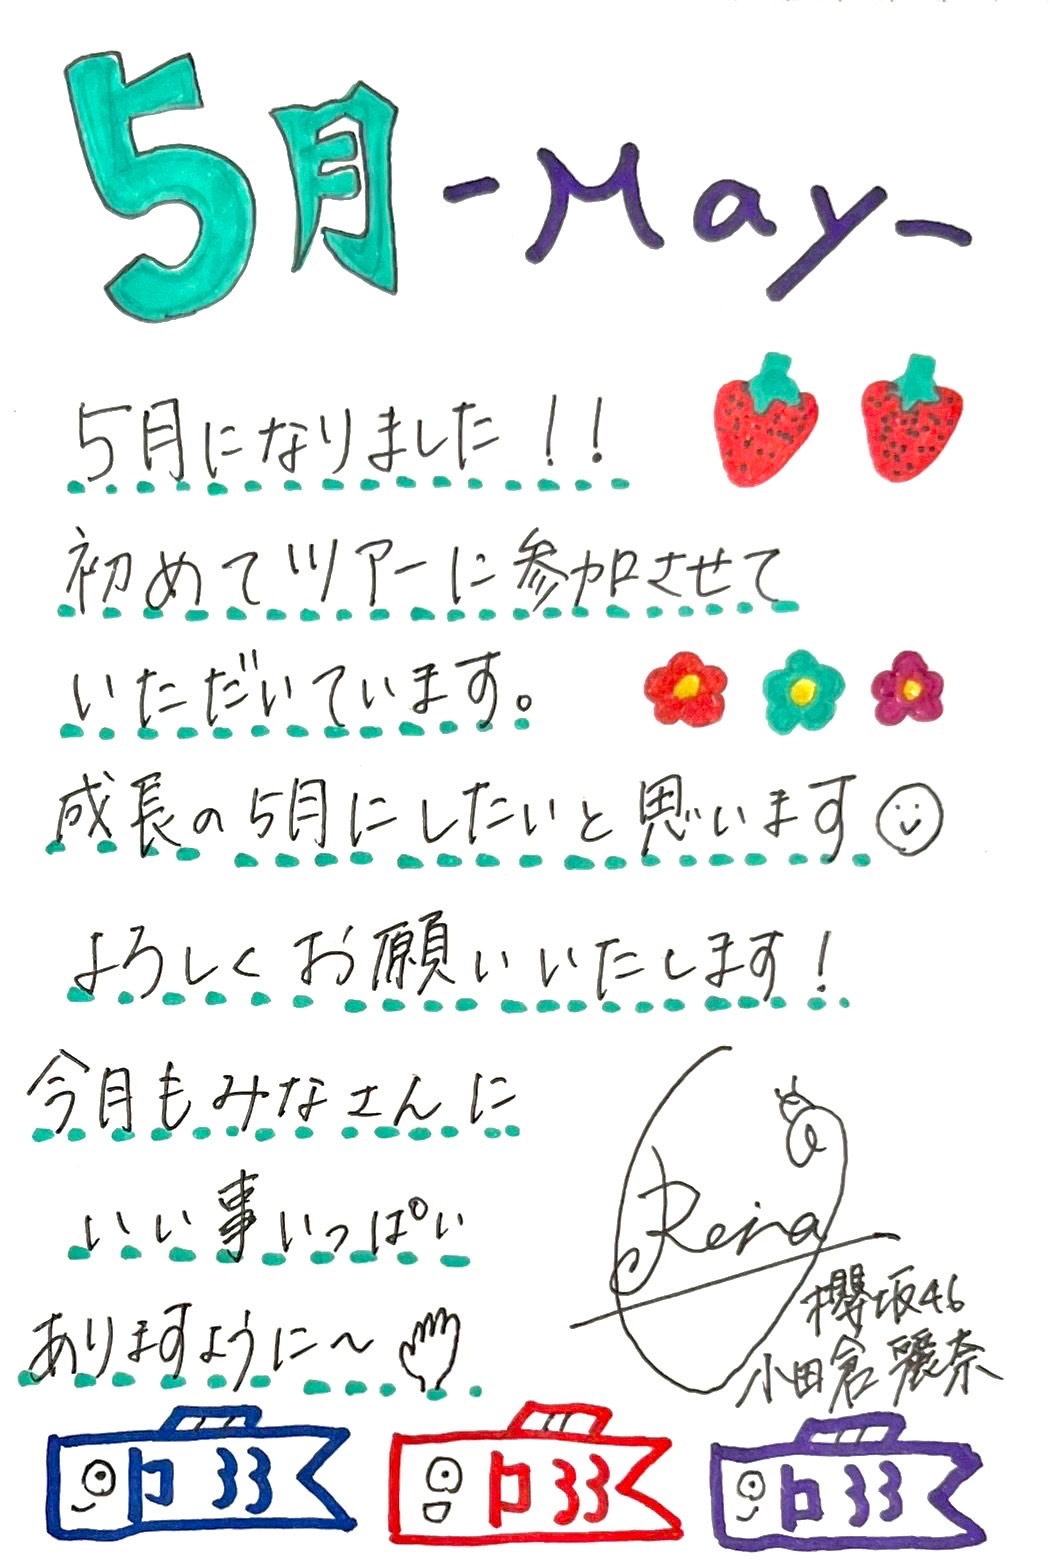 5月 -May-
5月になりました!!
初めてツアーに参加させて
いただいています。
成長の5月にしたいと思います
よろしくお願いいたします!
今月もみなさんに
いい事いっぱい
ありますように〜
Rena
櫻坂46
小田倉麗奈